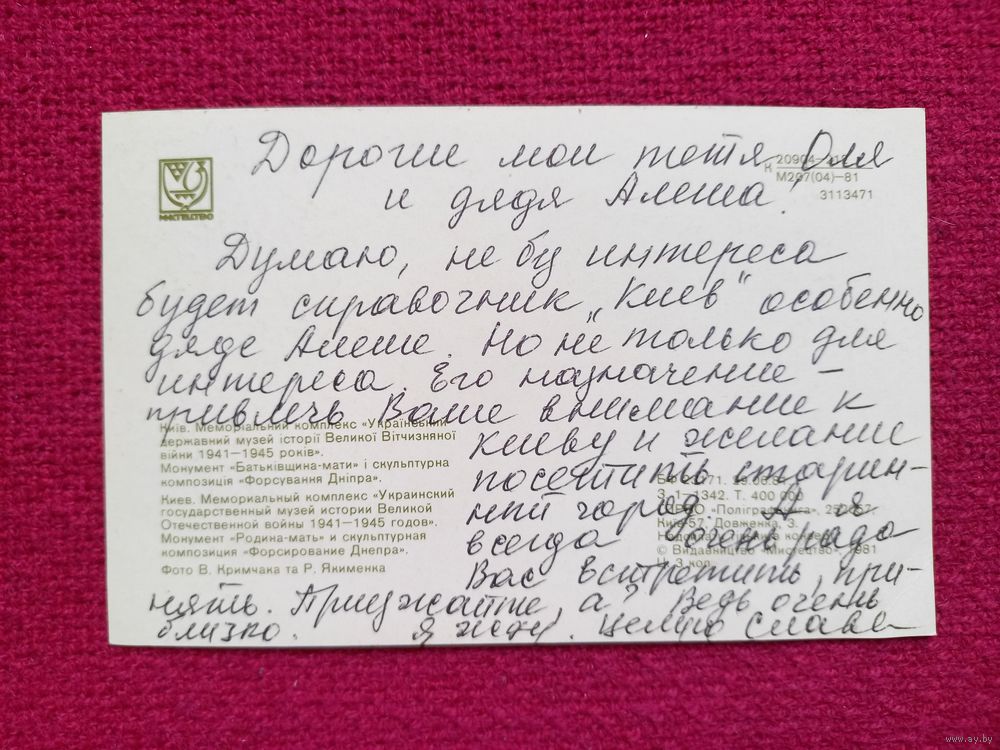 Дорогие мои тетя Оля
и дядя Алеша!
Думаю, не бу интереса
будет справочник „Киев" особенно
дяде Алеше. Но не только для
интереса. Его назначение –
привлечь Ваше внимание к
Киеву и желание
посетить старин-
ный город. А я
всегда очень рада
Вас встретить, при-
нять. Приезжайте, а? Ведь очень
близко. Я жду. Целую Слава
МИСТЕЦТВО
К 20904-
М207(04)—81
3113471
Київ. Меморіальний комплекс «Український
державний музей історії Великої Вітчизняної
війни 1941—1945 років».
Монумент «Батьківщина-мати» і скульптурна
композиція «Форсування Дніпра».
Киев. Мемориальный комплекс «Украинский
государственный музей истории Великой
Отечественной войны 1941—1945 годов».
Монумент «Родина-мать» и скульптурная
композиция «Форсирование Днепра».
Фото В. Кримчака та Р. Якименка
З. 1—1342. Т. 400 000
«Поліграфкнига»,
Київ-57, Довженка, 3.
© Видавництво «Мистецтво», 1981
www.ay.by